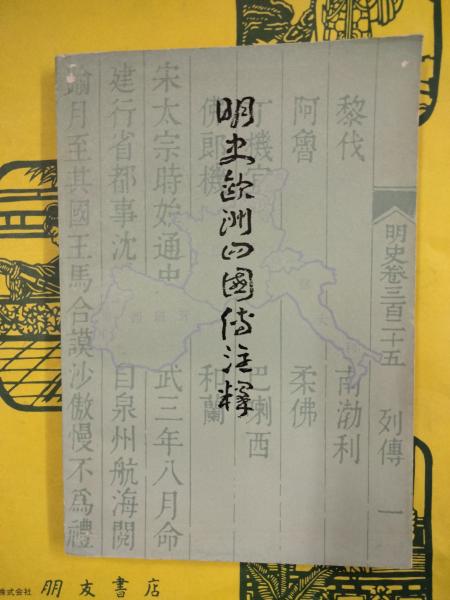 明史歐洲四國傳注釋
明史卷三百二十五 列傳 一
黎伐 南渤利
阿魯 柔佛
丁機宜 巴喇西
佛郎機 和蘭
宋太宗時始通中 武三年八月命
建行省都事沈 自泉州航海閱
踰月至其國王馬合謨沙傲慢不為禮
西班牙
株式会社 朋友書店